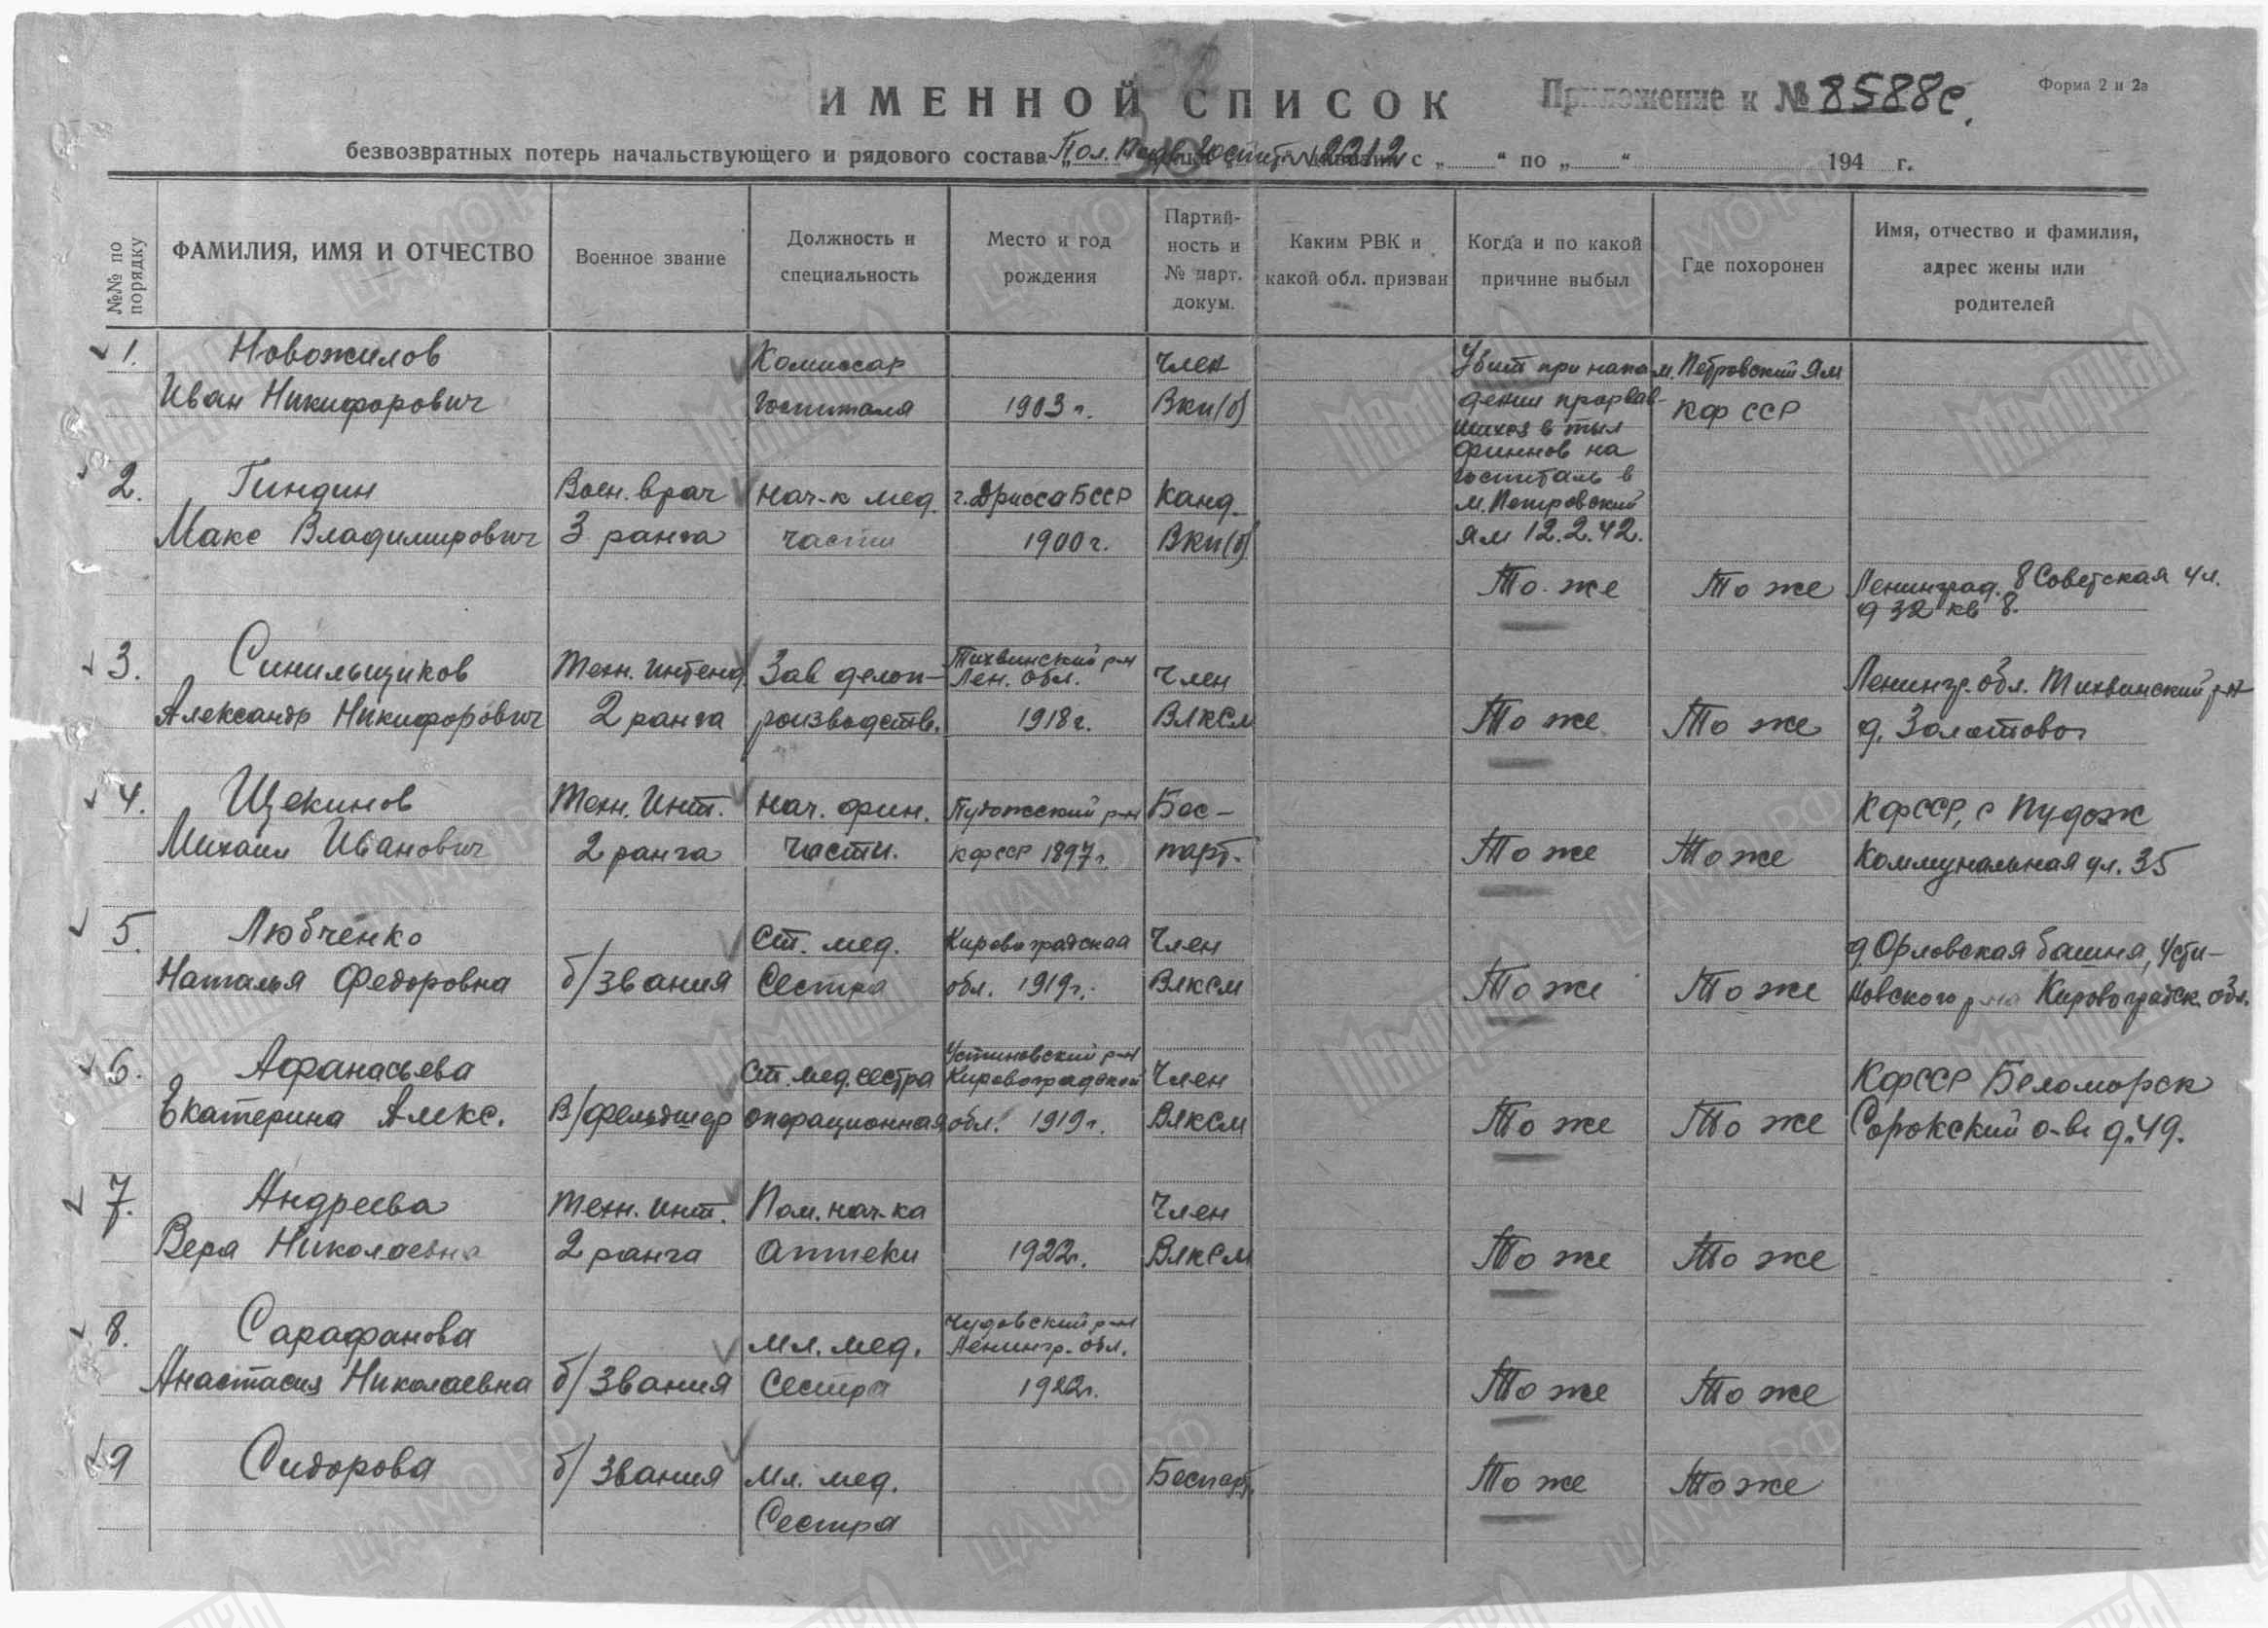 ИМЕННОЙ СПИСОК
Приложение к № 8588с.
Форма 2 и 2а
безвозвратных потерь начальствующего и рядового состава „Пол. Госпит. № 2212 с „ “ по „ “ 194 г.
№№ по порядку
ФАМИЛИЯ, ИМЯ И ОТЧЕСТВО
Военное звание
Должность и специальность
Место и год рождения
Партий-ность и № парт. докум.
Каким РВК и какой обл. призван
Когда и по какой причине выбыл
Где похоронен
Имя, отчество и фамилия, адрес жены или родителей
1. Новожилов Комиссар Член Убит при напа м. Петровский Ям
Иван Никифорович Госпиталя 1903 г. ВКП(б) дении прорвав- КФ ССР
шихся в тыл
финнов на
госпиталь в
м. Петровский
Ям 12.2.42.
2. Гиндин Воен. врач Нач-к мед. г. Дрисса БССР Канд.
Макс Владимирович 3 ранга части 1900 г. ВКП(б)
То же То же Ленинград. 8 Советская ул.
д 32 кв 8.
3. Синильщиков Техн. Интенд. Зав делоп- Тихвинский р-н Лен. обл. Член Ленингр. обл. Тихвинский р-н
Александр Никифорович 2 ранга роизводств. 1918 г. ВЛКСМ То же То же д. Залотово
4. Щекинов Техн. Инт. Нач. фин. Пудожский р-н Бес- КФССР, с Пудож
Михаил Иванович 2 ранга части. КФССР 1897 г. парт. То же То же Коммунальная ул. 35
5. Любченко Ст. мед. Кировоградская Член д. Орловская башня, Усти-
Наталья Федоровна б/звания Сестра обл. 1919 г. ВЛКСМ То же То же новского р-на Кировоградск. обл.
6. Афанасьева Ст. мед. сестра Устиновский р-н Кировоградской Член КФССР Беломорск
Екатерина Алекс. В/фельдшер операционная обл. 1919 г. ВЛКСМ То же То же Сорокский о-в д. 49.
7. Андреева Техн. Инт. Пом. нач-ка Член
Вера Николаевна 2 ранга Аптеки 1922 г. ВЛКСМ То же То же
8. Сарафанова Мл. мед. Чудовский р-н Ленингр. обл.
Анастасия Николаевна б/звания Сестра 1922 г. То же То же
9 Сидорова б/звания Мл. мед. Беспарт. То же То же
Сестра